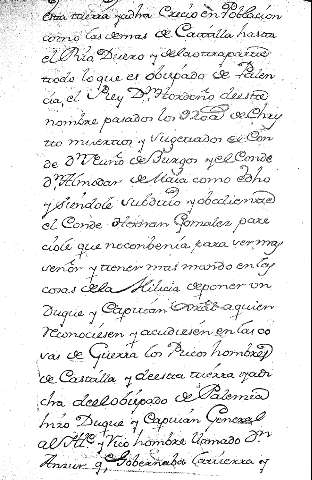 esta tierra y dha Crecio en Poblasion
como las demas de Castilla hasta
el Rio Duero y de la otra parte
todo lo que es obispado de Palen
cia, el Rey Dn. Hordoño de este
nombre pasados los de Chris
to muertos y Sugetados el Con
de Dn. Nuño de Burgos y el Conde
Dn. Almodar de Maia como dho
y siendole Subdito y obediente
el Conde Hernan Gonzalez pare
ciole que no conbenia para ser mas
señor y tener mas mando en las
cosas de la Milicia de poner un
Duque y Capitan a quien
reconociesen y acudiesen en las co
sas de Guerra los Ricos hombres
de Castilla y de esta tierra y di
cha del obispado de Palencia
hizo Duque y Capitan General
al Ille. y Rico hombre llamado Dn
Ansur q. Gobernaba la tierra y